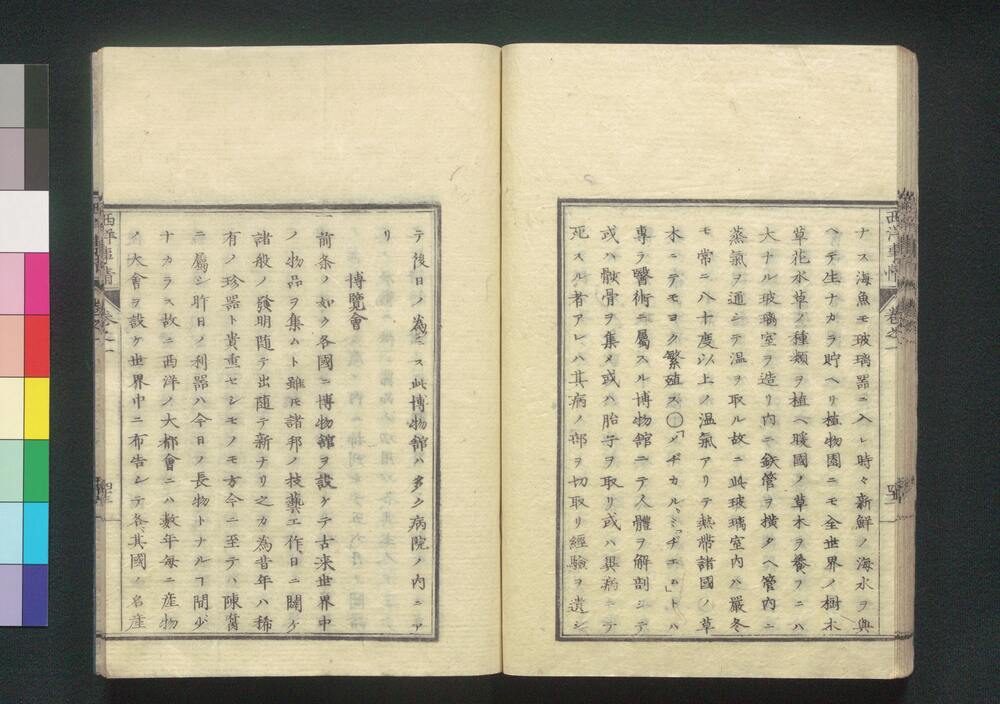 ナス海魚モ玻璃器ニ入レ時々新鮮ノ海水ヲ與
ヘテ生ナカラ貯ヘリ植物園ニモ全世界ノ樹木
草花水草ノ種類ヲ植ヘ暖國ノ草木ヲ養フニハ
大ナル玻璃室ヲ造リ内ニ鉄管ヲ横タヘ管内ニ
蒸氣ヲ通シテ温ヲ取ル故ニ此玻璃室内ハ嚴冬
モ常ニ八十度以上ノ温氣アリテ熱帯諸國ノ草
木ニテモヨク繁殖ス○「メヂカル、ミュヂエム」トハ
專ラ醫術ニ屬スル博物館ニテ人體ヲ解剖シテ
或ハ骸骨ヲ集メ或ハ胎子ヲ取リ或ハ異病ニテ
死スル者アレハ其病ノ部ヲ切取リ經驗ヲ遺シ
テ後日ノ為ニス此博物館ハ多ク病院ノ内ニア
リ
博覽會
一前条ノ如ク各國ニ博物館ヲ設ケテ古来世界中
ノ物品ヲ集ムト雖モ諸邦ノ技藝工作、日ニ闢ケ
諸般ノ發明随テ出随テ新ナリ之カ為昔年ハ稀
有ノ珍器ト貴重セシモノモ方今ニ至テハ陳腐
ニ屬シ昨日ノ利器ハ今日ノ長物トナルヿ間少
ナカラス故ニ西洋ノ大都會ニハ數年每ニ産物
ノ大會ヲ設ケ世界中ニ布告シテ各、其國ノ名産
西洋事情
卷之一